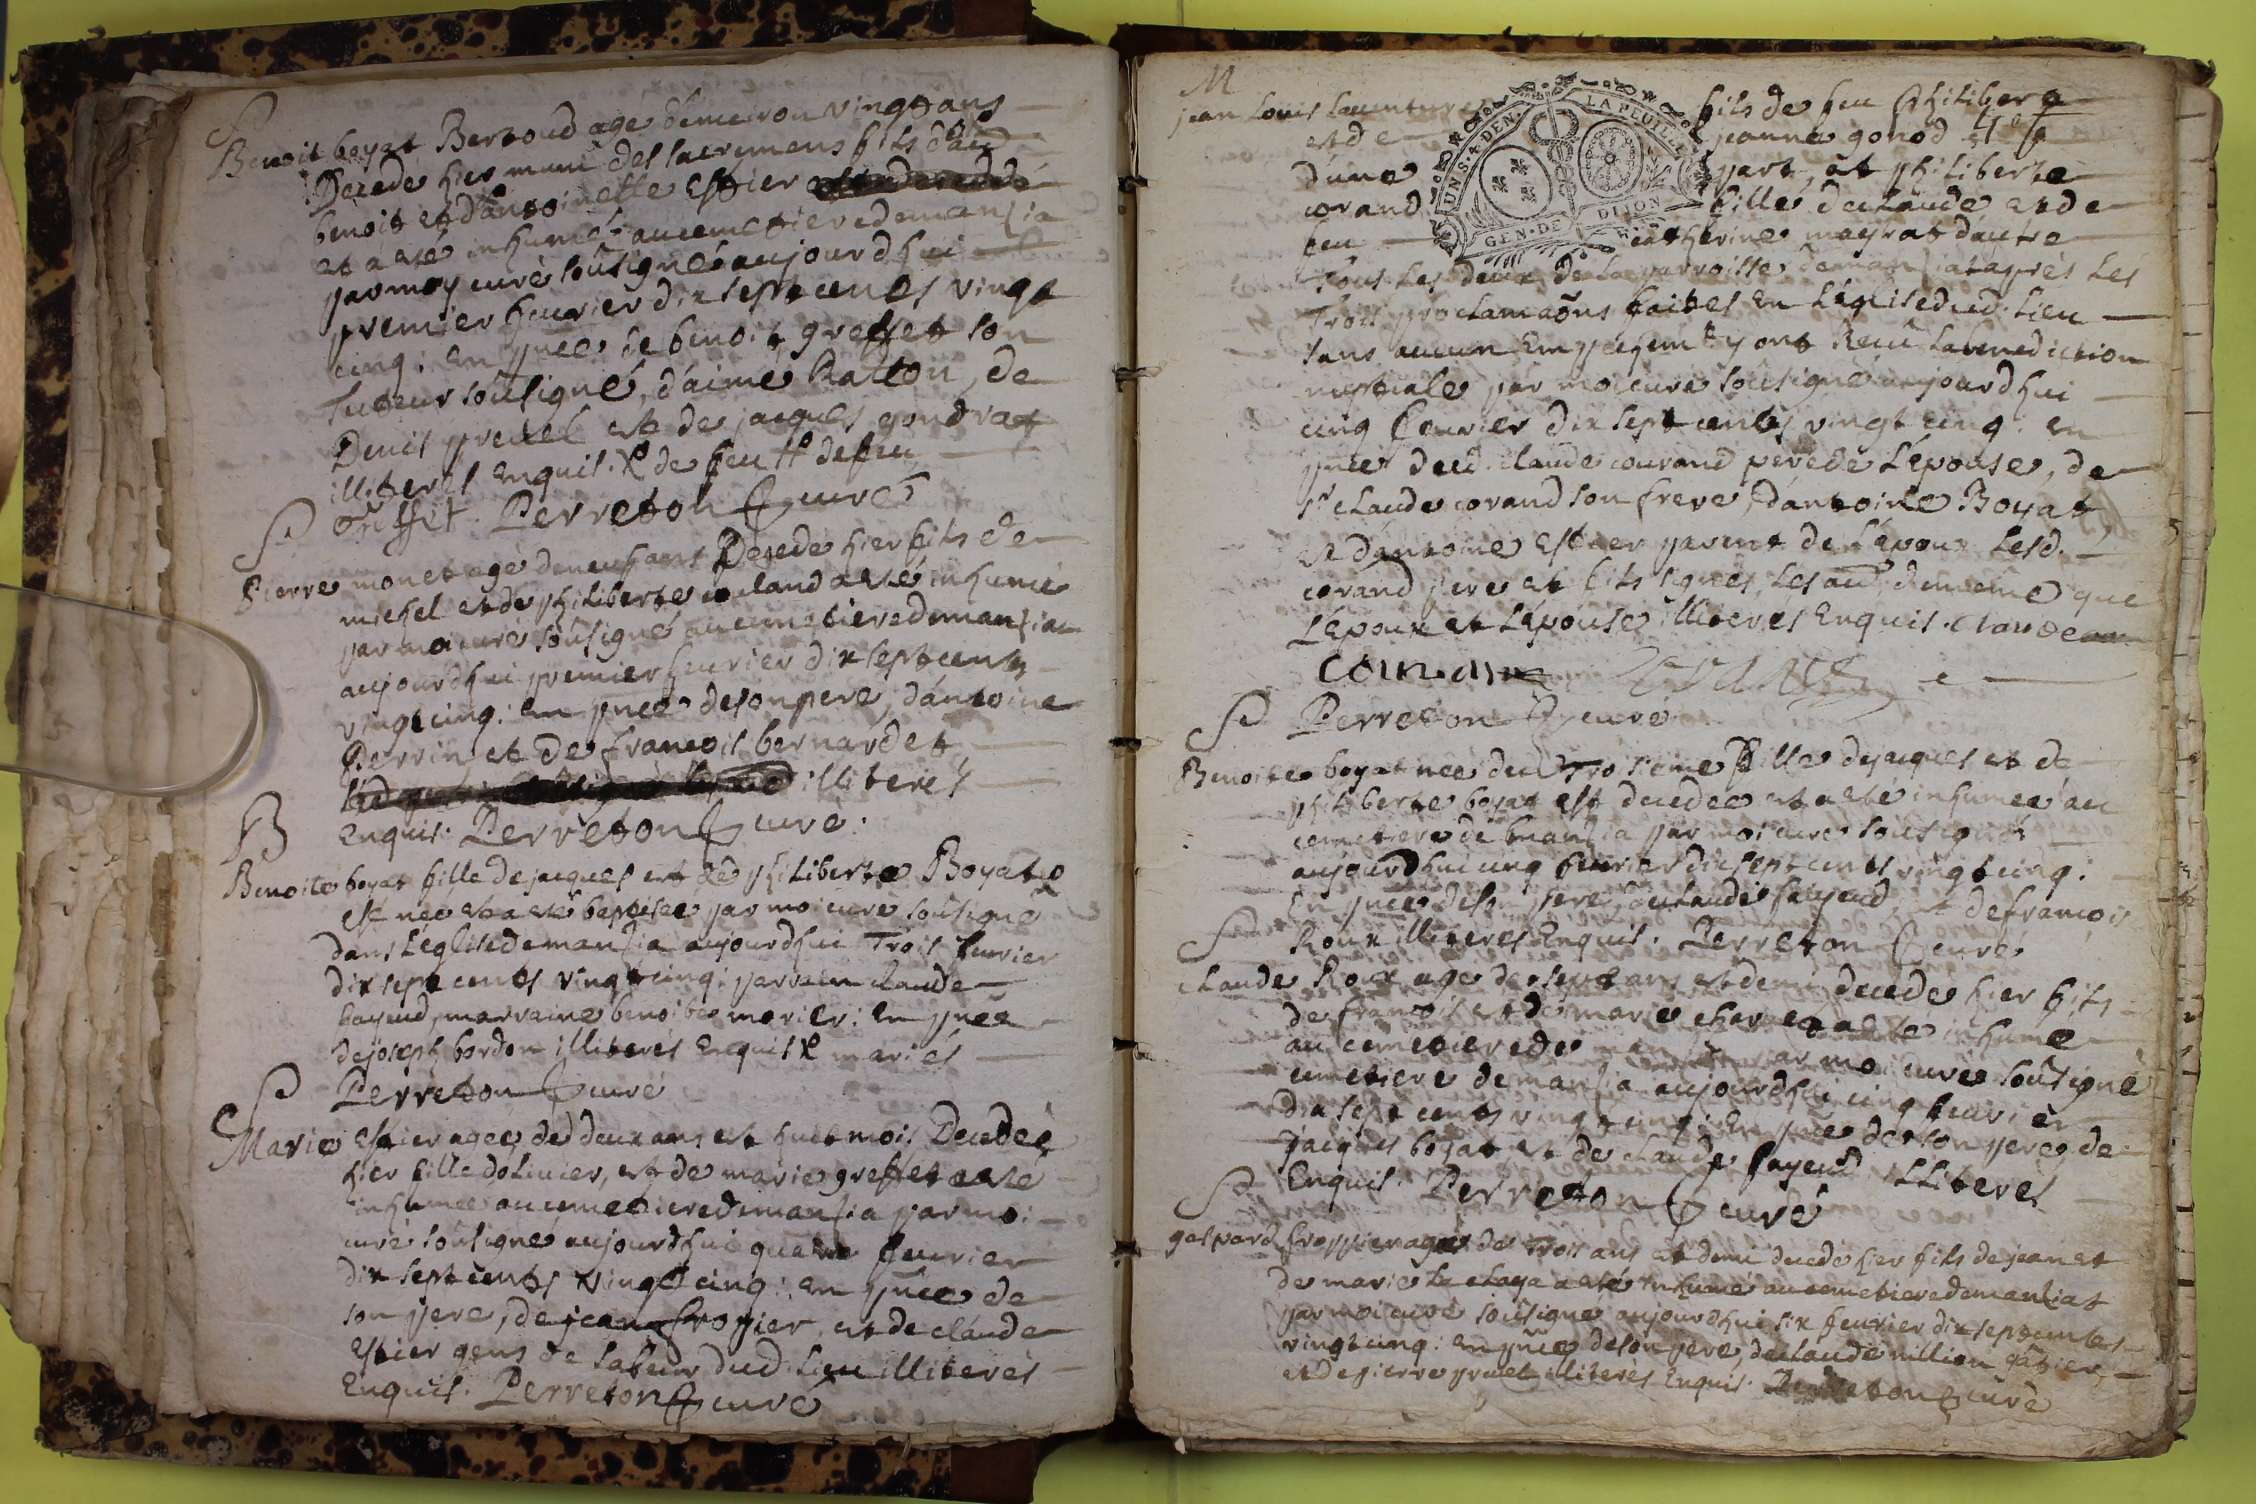 S
Benoit boyat Bertoud agé d'environ vingt ans
Decedé hier muni des sacremens fils d'aud
benoit et d'antoinette estier
et a eté inhumé au cemetiere de manzia
par moy curé soûsigné aujourd'hui
premier feurier dix sept cents vingt
cinq : en pnce de benoit greffet son
Tuteur soûsigné, d'aimé Ratton, de
Denis prevel et de jacques gondrat
illiterés Enquis. X de feu H defeu
greffet. Perreton curé
S
Pierre monet agé deneuf ans Decede hier fils de
michel et de philiberte a eté inhumé
par moi curé soûsigné au cemetiere demanzia
aujourdhui premier feurier dix sept cents
vingt cinq : en pnce deson pere, d'antoine
Perrin et De francois bernardet
illiterés
Enquis. Perreton curé.
B
Benoite boyat fille de jacques et de philiberte Boyat
est née et a eté baptisée par moi curé soûsigné
dans L'église demanzia aujourdhui Trois feurier
dix sept cents vingt cinq : parrain claude
fayend, marraine benoite morier : en pnce
de joseph bordon illiterés Enquis X mariés
Perreton curé
S
Marie estier agée de deux ans et huit mois Decedée
hier fille dolivier, et de marie greffet a eté
inhumée au cemetiere demanzia par moi
curé soûsigné aujourdhui quatre feurier
dix sept cents vingt cinq : en pnce de
son pere, de jean fropier, et de claude
Estier gens de labeur dud. lieu illiterés
Enquis. Perreton curé
M
jean Louis Lauenture fils de feu Philibert
et de jeanne gonod
d'une part, et philiberte
corand fille de claude et de
feu catherine mayrat d'autre
Tous Les deux de la parroisse demanziat apres Les
Trois proclamaõns faites En L'église dud. Lieu
sans aucun Empechemt y ont Receû La benediction
nuptiale par moi curé soûsigné aujourdhui
cinq feurier dix sept cents vingt cinq. en
pnce dud. claude courand pere de L'épouse, de
sr claude corand son frere, d'antoine Boyat
et d'antoine Estier parent de L'époux Lesd.
corand pere et fils signés, Les au. demême que
L'Epoux et L'épouse illiterés Enquis. claude
UN.S.4.DEN. LA FEUILLE
GEN.DE DIJON
S Perreton curé
Benoite boyat née du Troisieme fille de jacques et de
philiberte boyat est decedée et a eté inhumée au
cemetiere de manzia par moi curé soûsigné
aujourdhui cinq feurier dix sept cents vingt cinq :
En pnce deson pere, de claude fayend, et de francois
Roux illiterés Enquis. Perreton curé
S
claude Roux agé de sept ans et demi decede hier fils
de francois et de marie a eté inhumé
au cemetiere de par moi curé soûsigné
cemetiere demanzia aujourdhui cinq feurier
dix sept cents vingt cinq : En pnce de son pere, de
jacques boyat et de claude fayend illiterés
Enquis. Perreton curé
S
gaspard froppier agé de Trois ans et demi decede hier fils de jean et
de marie La claya a eté inhumé au cemetiere demanziat
par moi curé soûsigné aujourdhui six feurier dix sept cents
vingt cinq : en pnce deson pere, de claude million
et de pierre pruel illiterés Enquis. Perreton curé